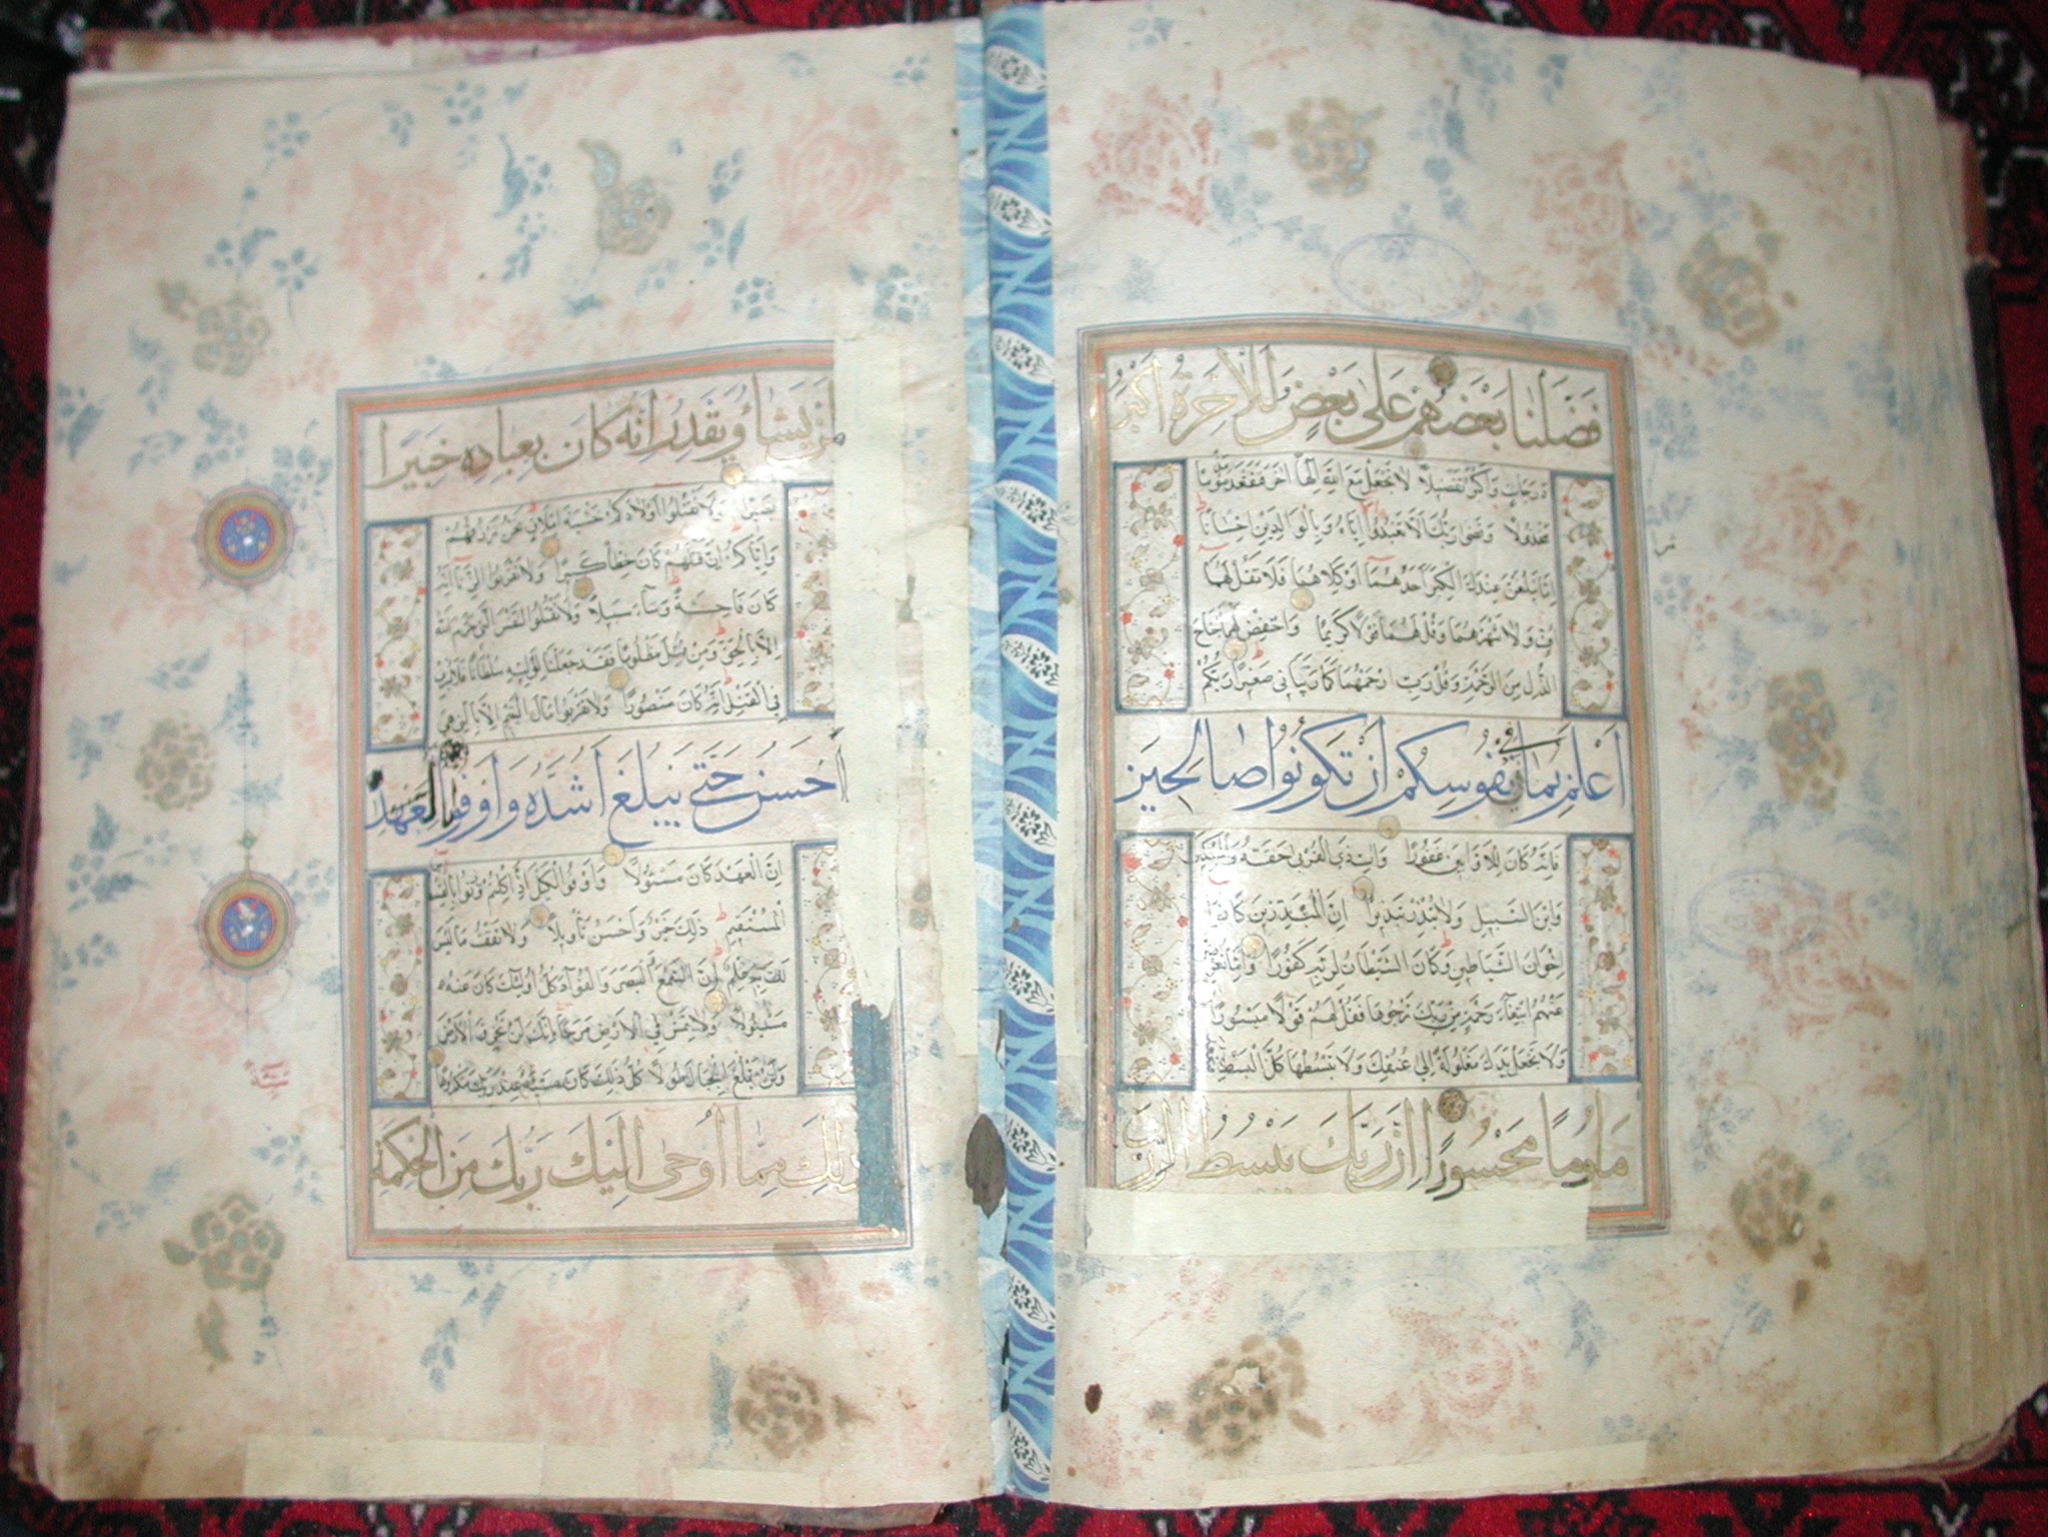 فَضَّلْنَا بَعْضَهُمْ عَلَىٰ بَعْضٍ وَلَلْآخِرَةُ أَكْبَرُ
دَرَجَاتٍ وَأَكْبَرُ تَفْضِيلًا لَا تَجْعَلْ مَعَ اللَّهِ إِلَٰهًا آخَرَ فَتَقْعُدَ مَذْمُومًا
مَخْذُولًا وَقَضَىٰ رَبُّكَ أَلَّا تَعْبُدُوا إِلَّا إِيَّاهُ وَبِالْوَالِدَيْنِ إِحْسَانًا
إِمَّا يَبْلُغَنَّ عِنْدَكَ الْكِبَرَ أَحَدُهُمَا أَوْ كِلَاهُمَا فَلَا تَقُلْ لَهُمَا
أُفٍّ وَلَا تَنْهَرْهُمَا وَقُلْ لَهُمَا قَوْلًا كَرِيمًا وَاخْفِضْ لَهُمَا جَنَاحَ
الذُّلِّ مِنَ الرَّحْمَةِ وَقُلْ رَبِّ ارْحَمْهُمَا كَمَا رَبَّيَانِي صَغِيرًا رَبُّكُمْ
أَعْلَمُ بِمَا فِي نُفُوسِكُمْ إِنْ تَكُونُوا صَالِحِينَ
فَإِنَّهُ كَانَ لِلْأَوَّابِينَ غَفُورًا وَآتِ ذَا الْقُرْبَىٰ حَقَّهُ وَالْمِسْكِينَ
وَابْنَ السَّبِيلِ وَلَا تُبَذِّرْ تَبْذِيرًا إِنَّ الْمُبَذِّرِينَ كَانُوا
إِخْوَانَ الشَّيَاطِينِ وَكَانَ الشَّيْطَانُ لِرَبِّهِ كَفُورًا وَإِمَّا تُعْرِضَنَّ
عَنْهُمُ ابْتِغَاءَ رَحْمَةٍ مِنْ رَبِّكَ تَرْجُوهَا فَقُلْ لَهُمْ قَوْلًا مَيْسُورًا
وَلَا تَجْعَلْ يَدَكَ مَغْلُولَةً إِلَىٰ عُنُقِكَ وَلَا تَبْسُطْهَا كُلَّ الْبَسْطِ فَتَقْعُدَ
مَلُومًا مَحْسُورًا إِنَّ رَبَّكَ يَبْسُطُ الرِّزْقَ
لِمَنْ يَشَاءُ وَيَقْدِرُ إِنَّهُ كَانَ بِعِبَادِهِ خَبِيرًا
بَصِيرًا وَلَا تَقْتُلُوا أَوْلَادَكُمْ خَشْيَةَ إِمْلَاقٍ نَحْنُ نَرْزُقُهُمْ
وَإِيَّاكُمْ إِنَّ قَتْلَهُمْ كَانَ خِطْأً كَبِيرًا وَلَا تَقْرَبُوا الزِّنَا إِنَّهُ
كَانَ فَاحِشَةً وَسَاءَ سَبِيلًا وَلَا تَقْتُلُوا النَّفْسَ الَّتِي حَرَّمَ اللَّهُ
إِلَّا بِالْحَقِّ وَمَنْ قُتِلَ مَظْلُومًا فَقَدْ جَعَلْنَا لِوَلِيِّهِ سُلْطَانًا فَلَا يُسْرِفْ
فِي الْقَتْلِ إِنَّهُ كَانَ مَنْصُورًا وَلَا تَقْرَبُوا مَالَ الْيَتِيمِ إِلَّا بِالَّتِي هِيَ
أَحْسَنُ حَتَّىٰ يَبْلُغَ أَشُدَّهُ وَأَوْفُوا بِالْعَهْدِ
إِنَّ الْعَهْدَ كَانَ مَسْئُولًا وَأَوْفُوا الْكَيْلَ إِذَا كِلْتُمْ وَزِنُوا بِالْقِسْطَاسِ
الْمُسْتَقِيمِ ذَٰلِكَ خَيْرٌ وَأَحْسَنُ تَأْوِيلًا وَلَا تَقْفُ مَا لَيْسَ
لَكَ بِهِ عِلْمٌ إِنَّ السَّمْعَ وَالْبَصَرَ وَالْفُؤَادَ كُلُّ أُولَٰئِكَ كَانَ عَنْهُ
مَسْئُولًا وَلَا تَمْشِ فِي الْأَرْضِ مَرَحًا إِنَّكَ لَنْ تَخْرِقَ الْأَرْضَ
وَلَنْ تَبْلُغَ الْجِبَالَ طُولًا كُلُّ ذَٰلِكَ كَانَ سَيِّئُهُ عِنْدَ رَبِّكَ مَكْرُوهًا
ذَٰلِكَ مِمَّا أَوْحَىٰ إِلَيْكَ رَبُّكَ مِنَ الْحِكْمَةِ